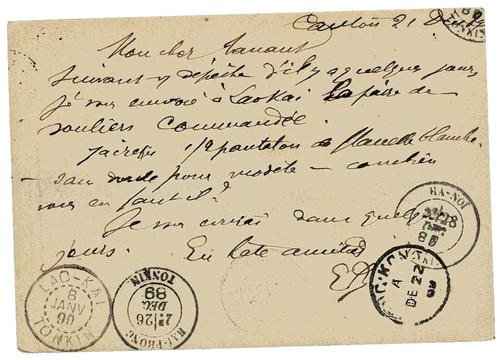 Canton 21 Déc
Mon cher Manaut
Suivant v dépêche d'il y a quelques jours
je vous envoie à Laokai la paire de
souliers commandée.
J'ai reçu 1/2 pantalon de flanelle blanche
sans doute pour modèle — combien
vous en faut-il?
Je vous écrirai dans quelques
jours. En hâte amitiés
TONKIN
HA-NOI
28
DÉC
HONG-KONG
A
DE 22
LAO-KAI
8
JANV
90
TONKIN
HAI-PHONG
26
DEC
89
TONKIN